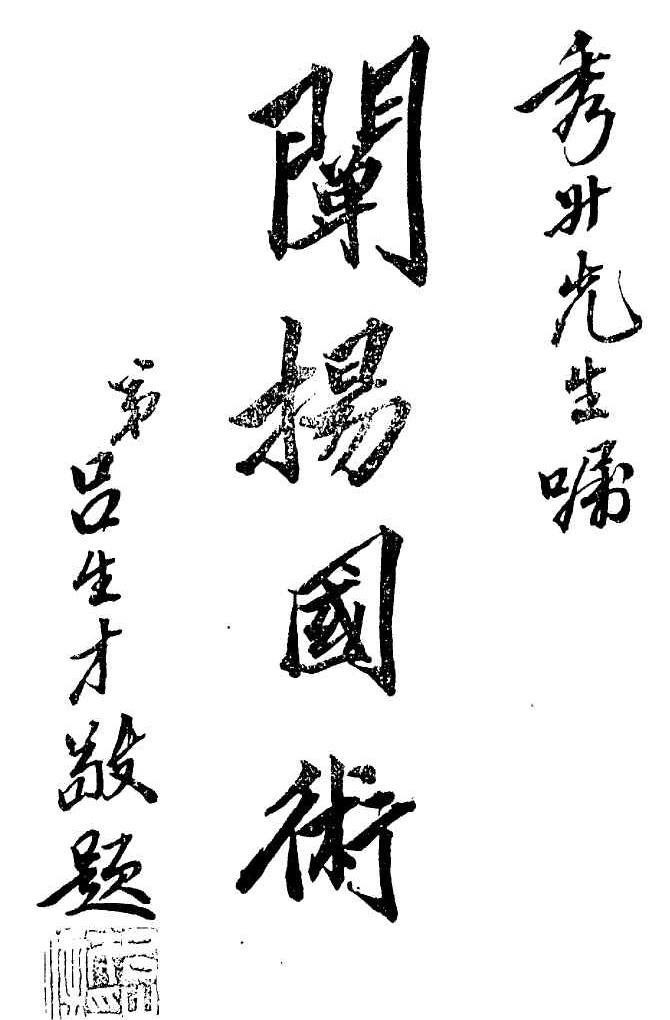 秀升先生嘱
闡揚國術
弟呂生才敬題